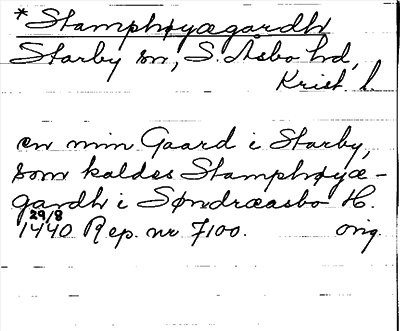 * Stamphøyægardh
Starby sn, S. Åsbo hd,
Krist. l.
en min Gaard i Starby,
som kaldes Stamphøyæ-
gardh i Søndræasbo H.
29/8
1440 Rep. nr 7100. orig.